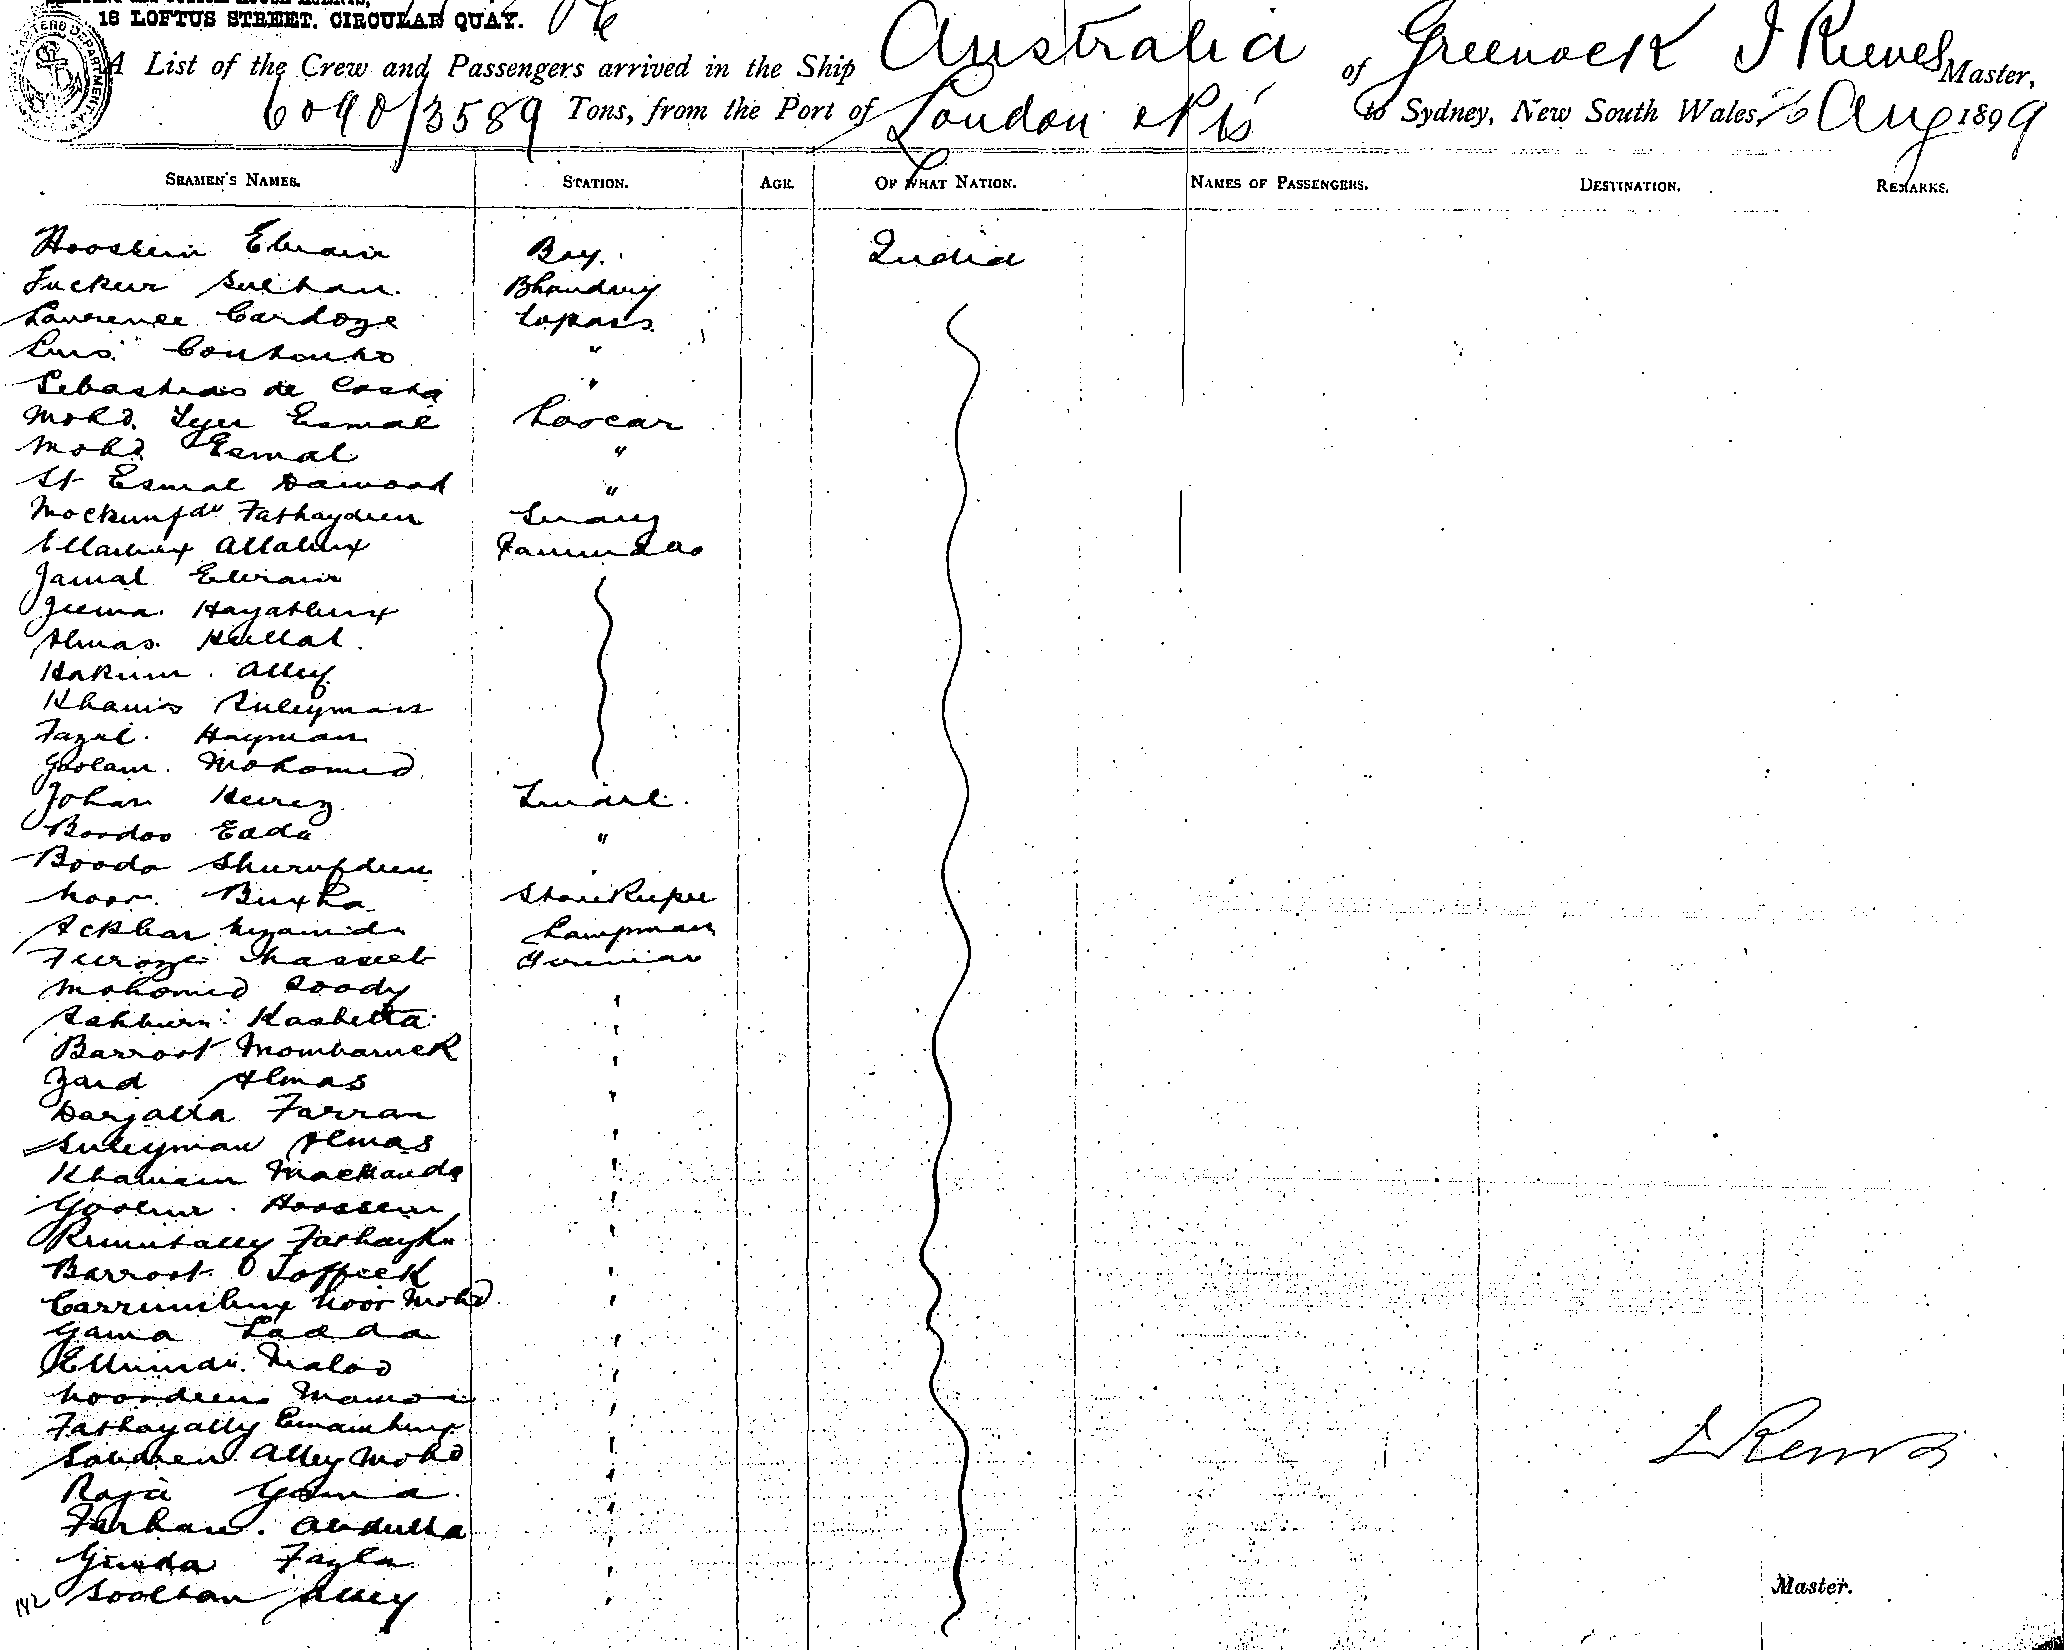 16 LOFTUS STREET, CIRCULAR QUAY.
A List of the Crew and Passengers arrived in the Ship Australia of Greenock J Reeves Master,
6090/3589 Tons, from the Port of London & Pts to Sydney, New South Wales, 26 Aug 1899
SEAMEN'S NAMES. STATION. AGE. OF WHAT NATION. NAMES OF PASSENGERS. DESTINATION. REMARKS.
Hoossein Ebraim Boy. India
Fuckeer Sulthan Bhandary
Lawrence Cardoze Topass
Luis Coutinho "
Sebastiao de Costa "
Mohd. Syer Esmal Loocar
Mohd Esmal "
St Esmal Dawood "
Fathaydeen Serang
Ellabux Allabux
Jamal Ebraim
Jeema Hayatbux
Almas Hullal
Hakeem Alley
Khamis Suleyman
Fazel Hayman
Goolam Mohomed
Johan Tindel
Boodoo Eada "
Booda Shurufdeen "
Noor Buxha Storekeeper
Ackbar Lampman
Feroze Fireman
Mohomed Soody "
Kasbetta "
Barroot Mombaruck "
Zaid Almas "
Darjalla Farran "
Suleyman Almas "
Khamism Mackanda "
Hoossein "
Barroot Toffeek "
Carrumbux Noor Mohd "
Gama Ladda "
Maloo "
Noordeen "
Fathayally Emambux "
Alley Mohd "
Raja Gama "
J Reeves
Farhan Abdulla "
Fazla "
Master.
142 Sooltan Alley "